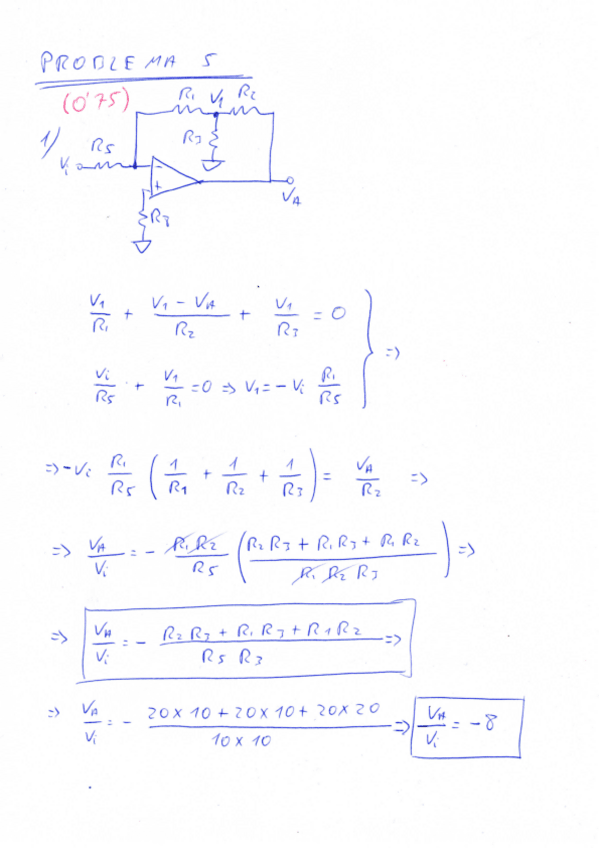 PROBLEMA 5
(0'75)
R1 V1 R2
1) R5 R3
Vi - 
+ VA
R8
V1/R1 + (V1 - VA)/R2 + V1/R3 = 0
=>
Vi/R5 + V1/R1 = 0 => V1 = - Vi R1/R5
=> - Vi R1/R5 (1/R1 + 1/R2 + 1/R3) = VA/R2 =>
=> VA/Vi = - R1 R2/R5 ((R2 R3 + R1 R3 + R1 R2)/(R1 R2 R3)) =>
=> VA/Vi = - (R2 R3 + R1 R3 + R1 R2)/(R5 R3) =>
=> VA/Vi = - (20 x 10 + 20 x 10 + 20 x 20)/(10 x 10) => VA/Vi = - 8